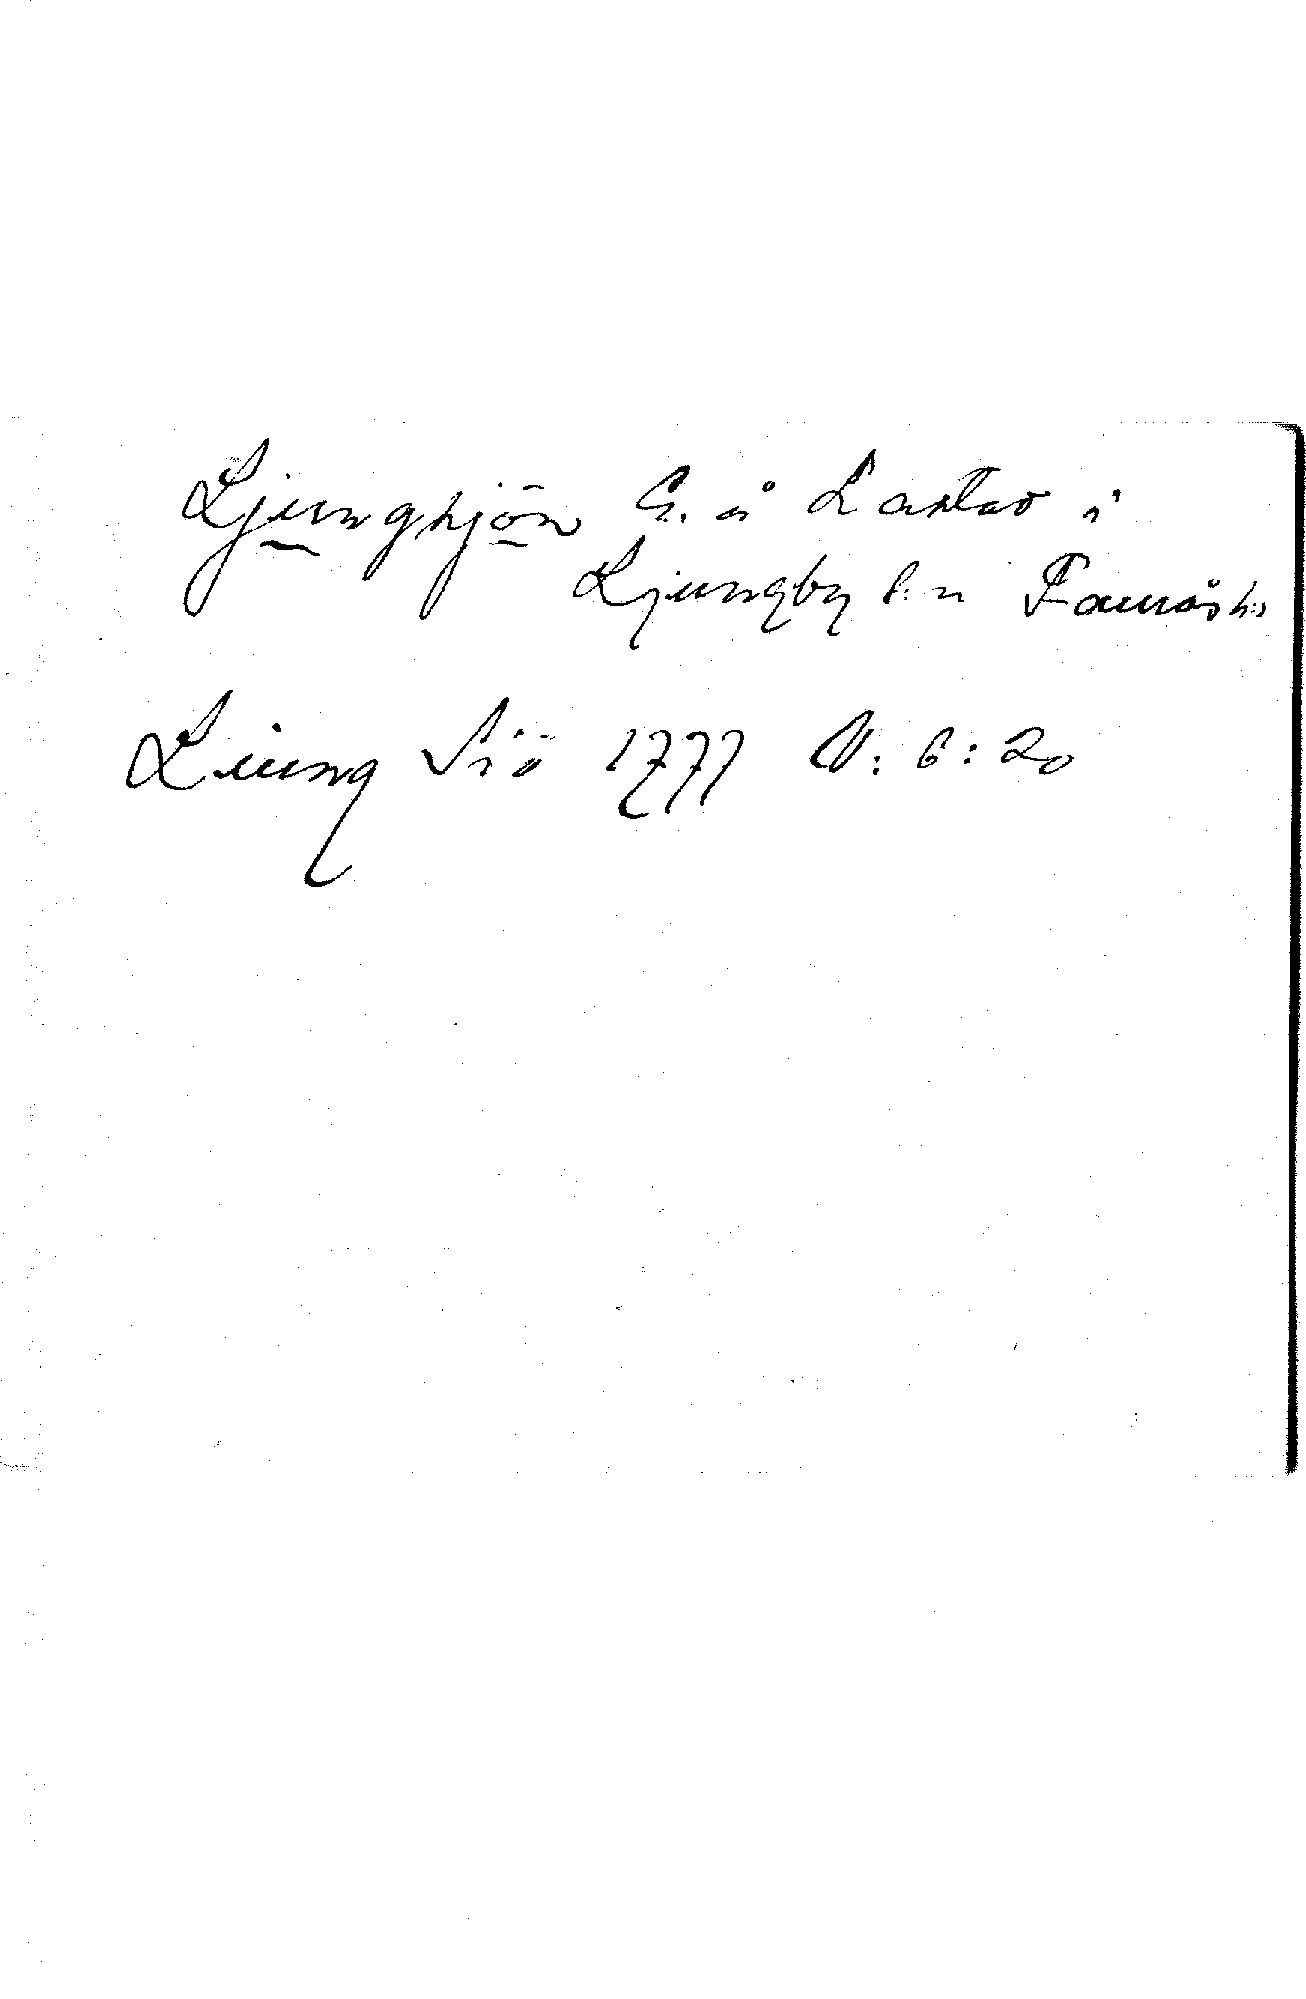 Ljungsjön G. å Lastad i
Ljungby s:n Faurås hd
Liung Siö 1777 V: 6: 20